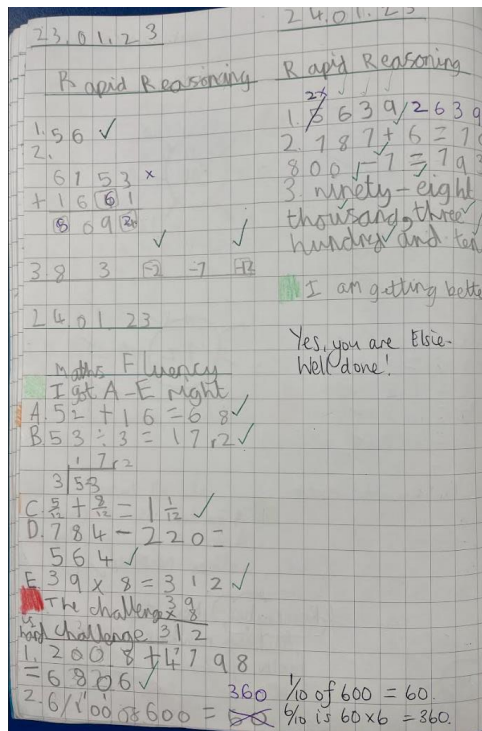 23.01.23
Rapid Reasoning
1. 56 ✓
2.
6153 ×
+ 1661
8 69
3. 8 3 -2 -7 -12
24.01.23
Maths Fluency
I got A-E right
A. 52 + 16 = 68 ✓
B. 53 ÷ 3 = 17 r2 ✓
17 r2
3 53
C. 5/12 + 8/12 = 1 1/12 ✓
D. 784 - 220 =
564 ✓
E. 39 x 8 = 312 ✓
The challenge 39
is x 8
hard challenge 312
1. 2008 + 4798
= 6806 ✓
2. 6/100 of 600 = 360
24.01.23
Rapid Reasoning
1. 5639, 2639
2. 787 + 6 = 7
800 - 7 = 79
3. ninety-eight
thousand, three
hundred and ten
I am getting bette
Yes, you are Elsie.
Well done!
1/10 of 600 = 60.
6/10 is 60 x 6 = 360.